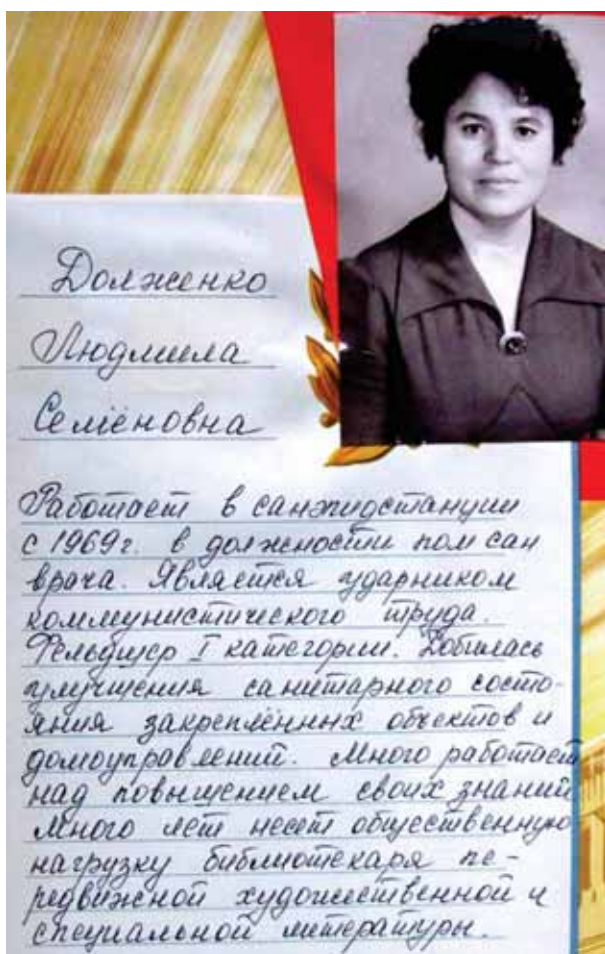 Долженко
Людмила
Семёновна
Работает в санэпидстанции
с 1969г. в должности пом сан
врача. Является ударником
коммунистического труда.
Фельдшер I категории. Добилась
улучшения санитарного состо-
яния закреплённых объектов и
домоуправлений. Много работает
над повышением своих знаний
Много лет несет общественную
нагрузку библиотекаря пе-
редвижной художественной и
специальной литературы.